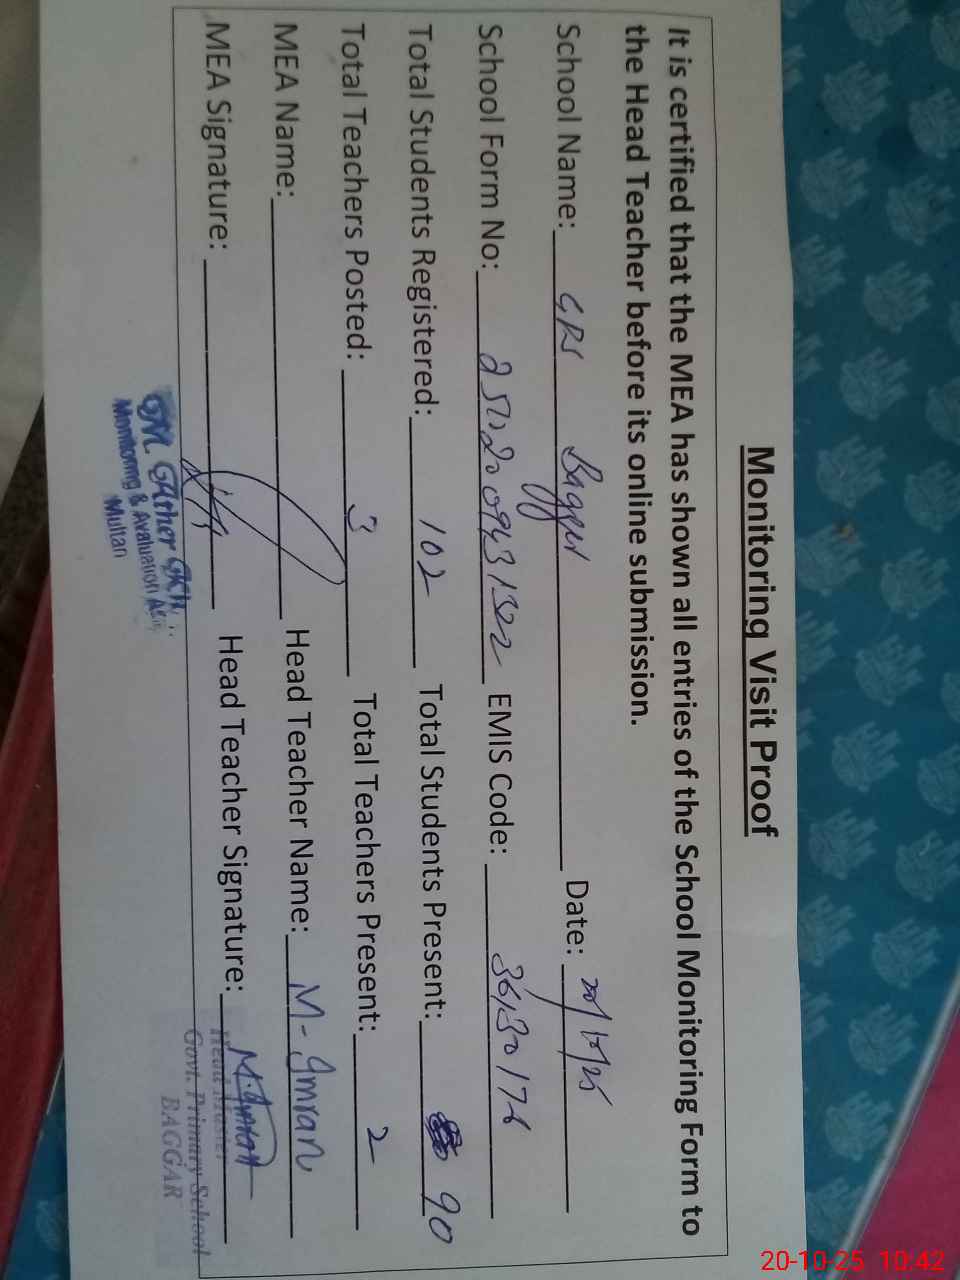 Monitoring Visit Proof
It is certified that the MEA has shown all entries of the School Monitoring Form to
the Head Teacher before its online submission.
School Name: GPS Baggar Date: 20/10/25
School Form No: EMIS Code: 36130176
Total Students Registered: 102 Total Students Present: 90
Total Teachers Posted: 3 Total Teachers Present: 2
MEA Name: Head Teacher Name: M-Imran
MEA Signature: Head Teacher Signature: M.Imran
Monitoring & Avaluation
Multan
Head Master
Govt. Primary School
BAGGAR
20-10-25 10:42